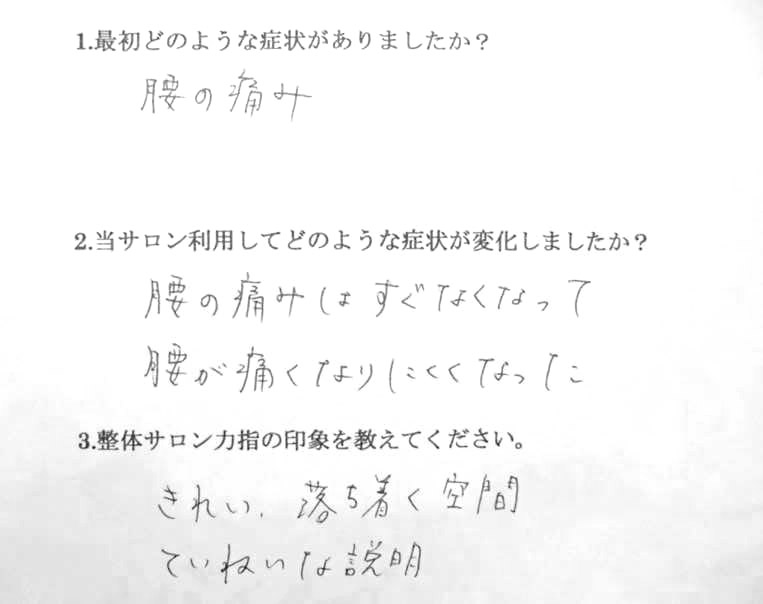 1.最初どのような症状がありましたか？
腰の痛み
2.当サロン利用してどのような症状が変化しましたか？
腰の痛みはすぐなくなって
腰が痛くなりにくくなった
3.整体サロン力指の印象を教えてください。
きれい、落ち着く空間
ていねいな説明